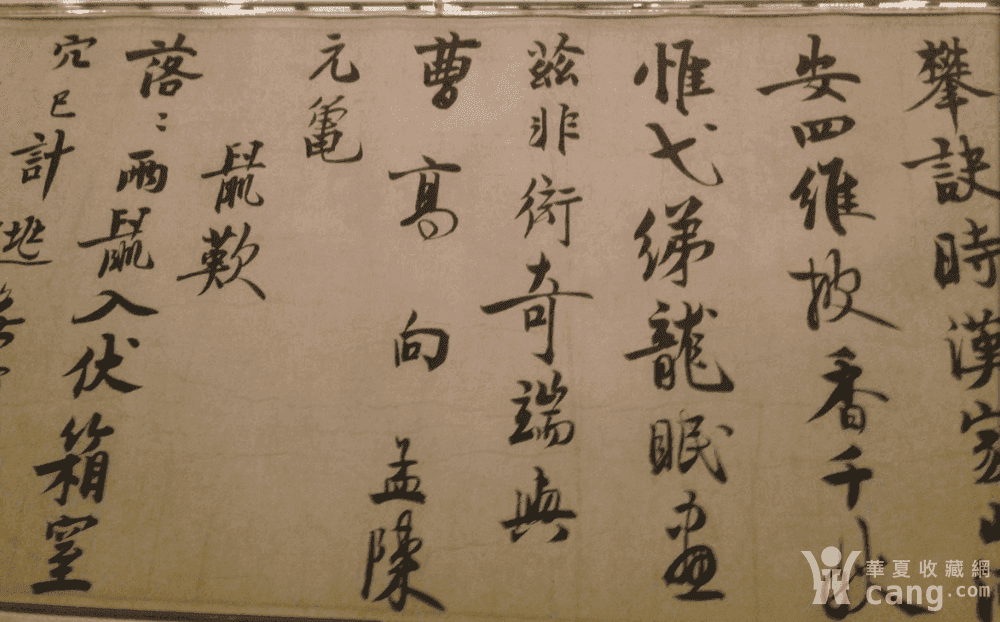 攀訣時漢家
安四維披香千
惟弋綈龍眠畫
茲非衒奇端與
曹高向孟
元
鼠歎
落：兩鼠入伏箱窒
穴已計逃
華夏收藏網
cang.com